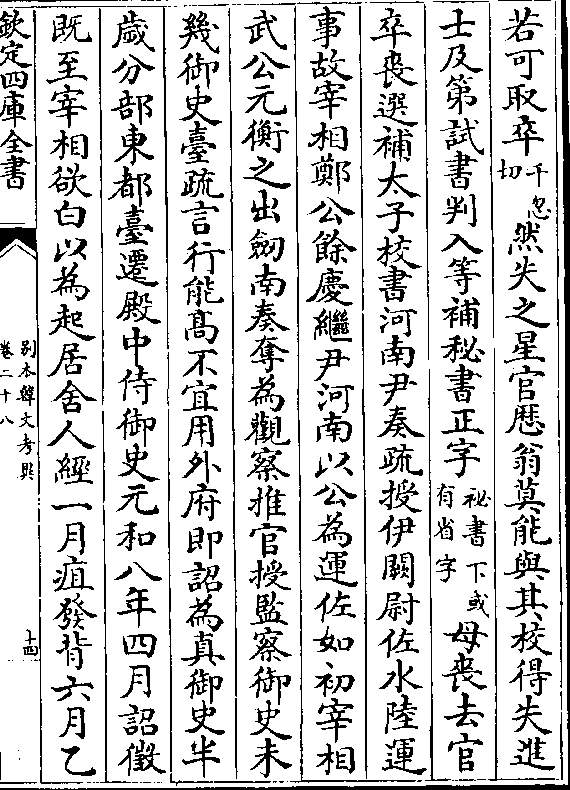 若可取卒千忽切然失之星官厯翁莫能與其校得失進
士及第試書判入等補秘書正字秘書下或有省字母喪去官
卒喪選補太子校書河南尹奏疏授伊闕尉佐水陸運
事故宰相鄭公餘慶繼尹河南以公為運佐如初宰相
武公元衡之出劒南奏奪為觀察推官授監察御史未
幾御史臺疏言行能髙不宜用外府即詔為真御史半
歲分部東都臺遷殿中侍御史元和八年四月詔徵
既至宰相欲白以為起居舍人經一月疽發背六月乙
欽定四庫全書
别本韓文考異
卷二十八
十四